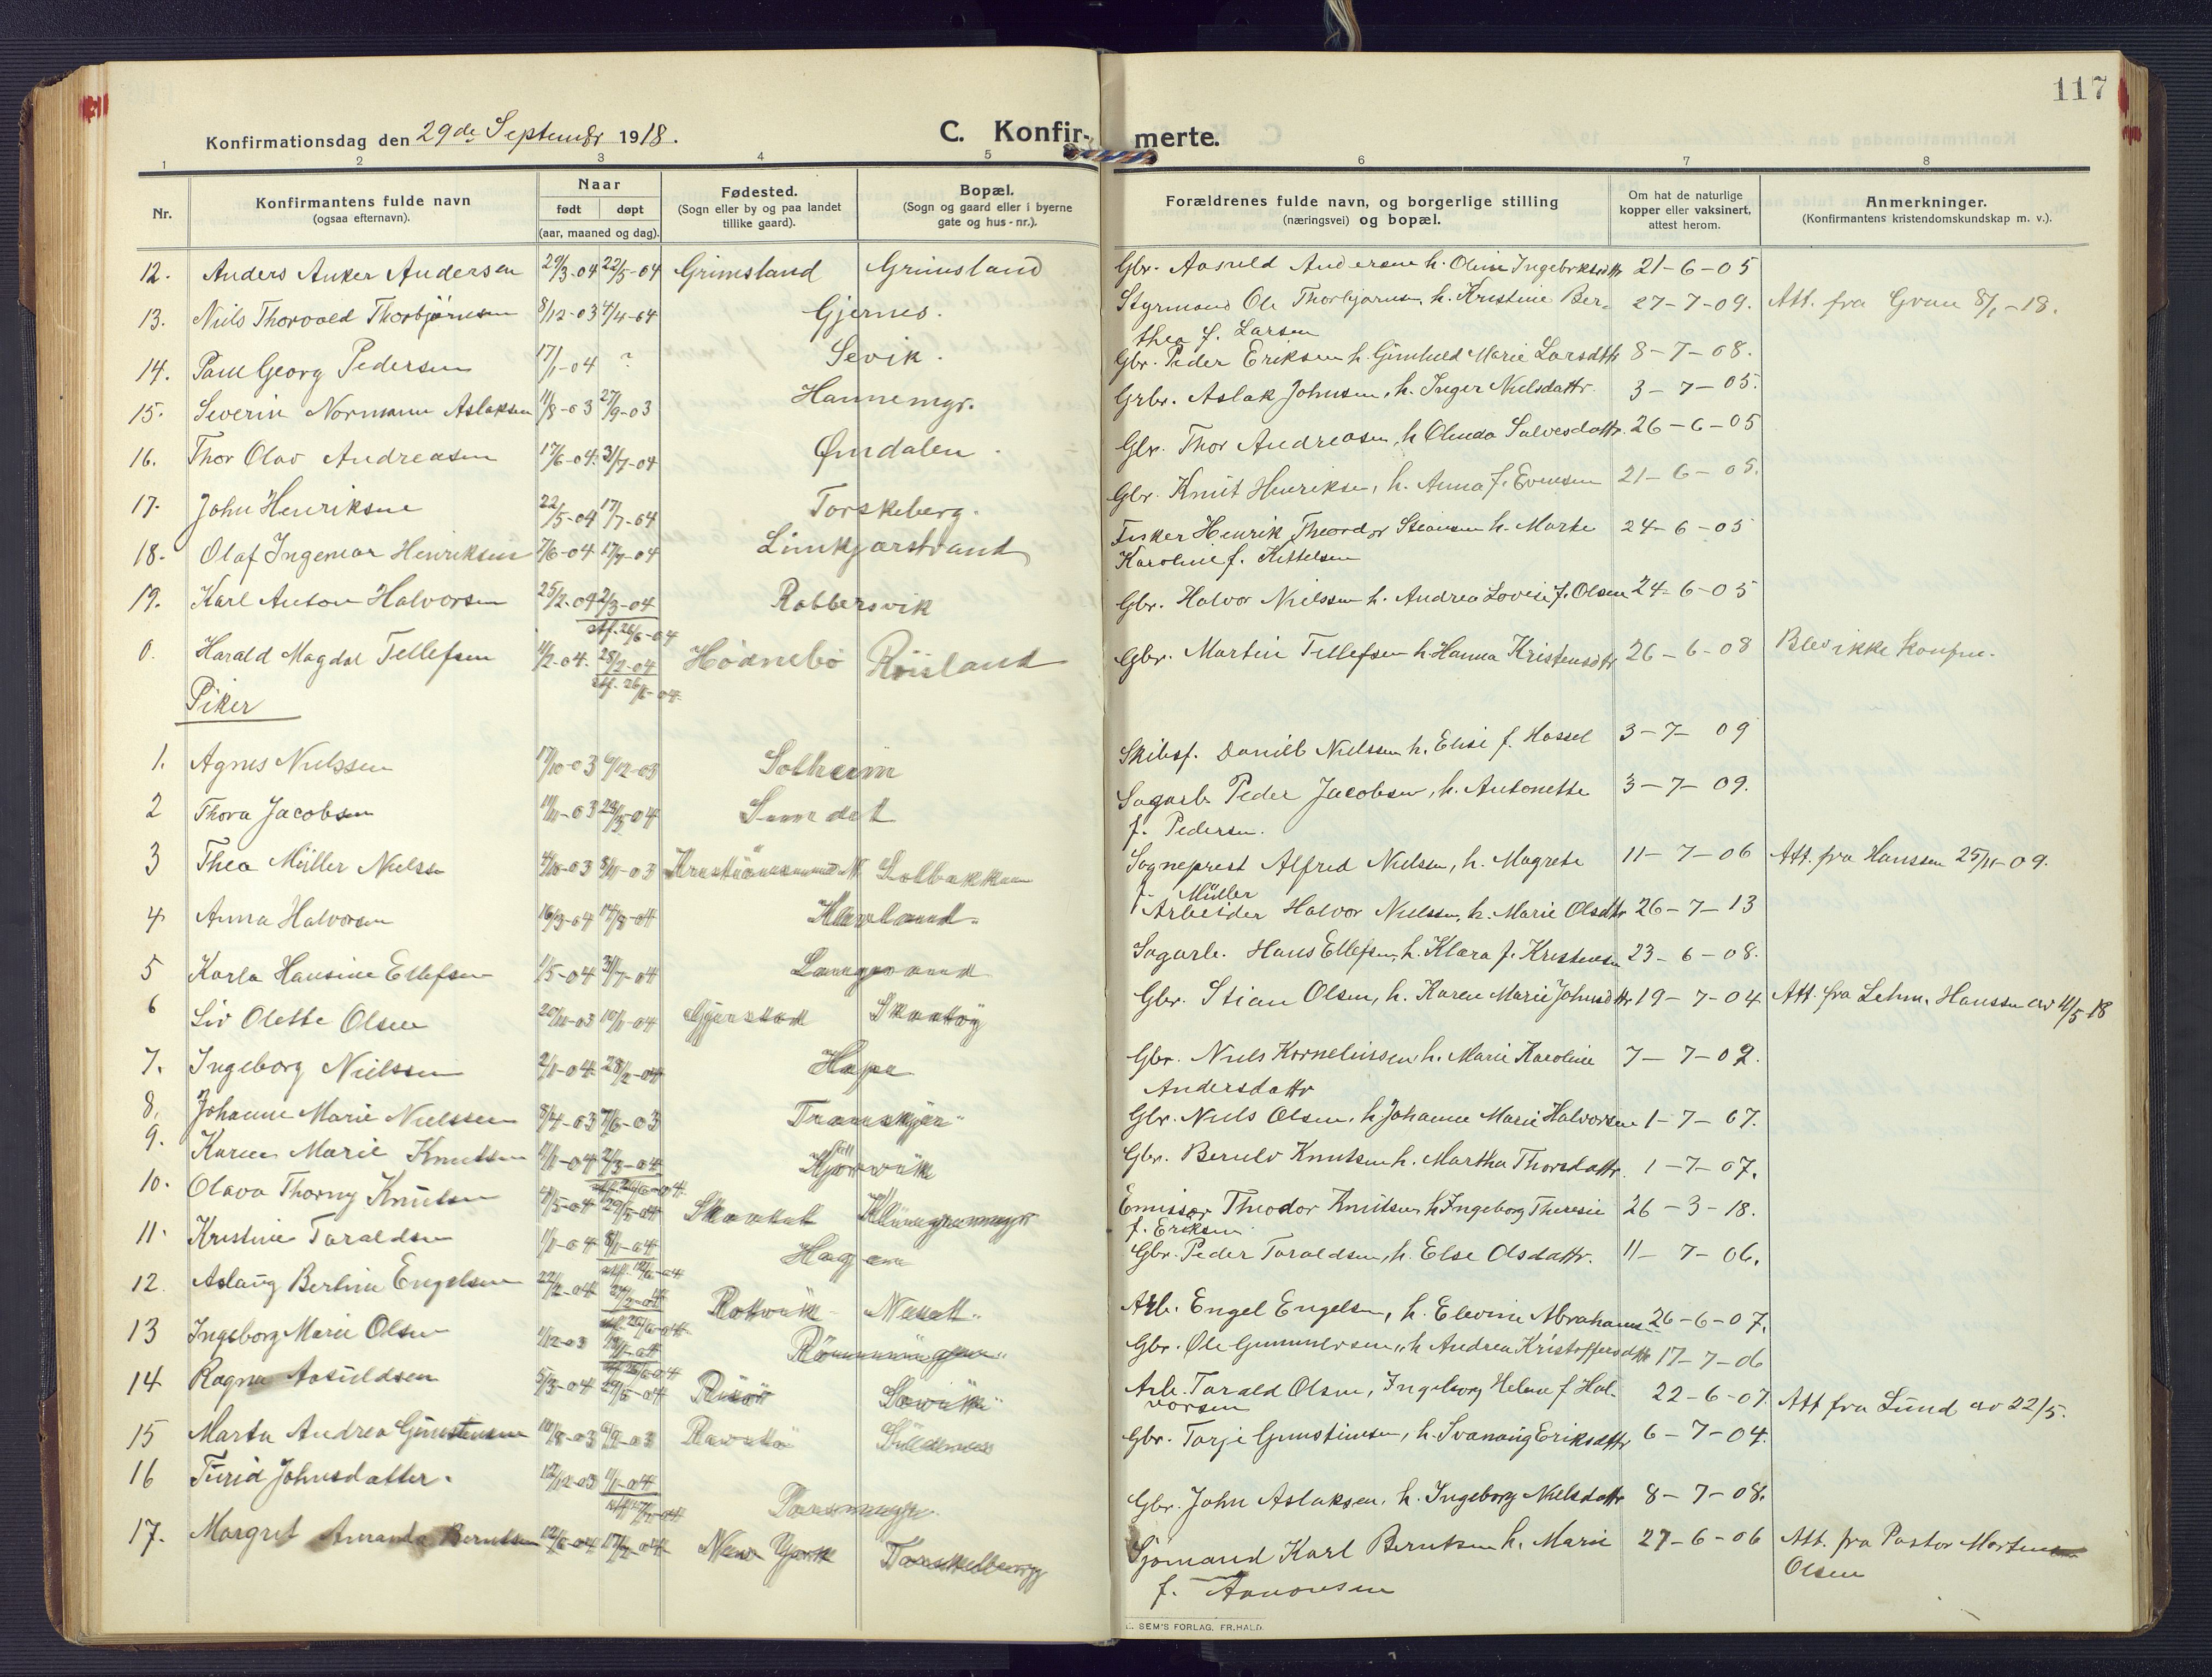 117
Konfirmationsdag den 29de September 1918.
C. Konfir-merte.
1 2 3 4 5 6 7 8
Nr.
Konfirmantens fulde navn
(ogsaa efternavn).
Naar
født døpt
(aar, maaned og dag).
Fødested.
(Sogn eller by og paa landet
tillike gaard).
Bopæl.
(Sogn og gaard eller i byerne
gate og hus-nr.).
Forældrenes fulde navn, og borgerlige stilling
(næringsvei) og bopæl.
Om hat de naturlige
kopper eller vaksinert,
attest herom.
Anmerkninger.
(Konfirmantens kristendomskundskap m. v.).
12. Anders Anker Andersen 29/3-04 22/5-04 Grimsland Grimsland Gbr. Aasuld Andersen h. Oline Ingebrktsdttr 21-6-05
13. Niels Thorvald Thorbjørnsen 8/12-03 4/4-04 Gjernes. Styrmand Ole Thorbjørnsen, h. Kristine Ber- 27-7-09. Att. fra Grun 8/1-18.
thea f. Larsen
14. Paul Georg Pedersen 17/1-04 ? Sevik. Gbr. Peder Eriksen h. Gunhild Marie Larsdttr 8-7-08.
15. Severin Normann Aslaksen 11/8-03 27/9-03 Hannemyr. Grbr. Aslak Johnsen, h. Inger Nielsdattr. 3-7-05.
16. Thor Olav Andreasen 17/6-04. 31/7-04 Ømdalen. Gbr. Thor Andreasen, h. Olinda Salvesdattr. 26-6-05
17. John Henriksen 22/5-04 17/7-04 Torskeberg. Gbr. Knut Henriksen, h. Anna f. Evensen 21-6-05.
18. Olaf Ingemar Henriksen 7/6-04 17/7-04 Limkjærstrand Fisker Henrik Theordor Steansen h. Marte 24-6-05
Karoline f. Kittelsen
19. Karl Anton Halvorsen 25/2-04 2/3-04 Robbersvik Gbr. Halvor Nielssen h. Andrea Lovise f. Olsen 24-6-05
stf. 26/6-04
0. Harald Magdal Tellefsen 11/2-04. 28/2-04 Hødnebø Røisland Gbr. Martin Tellefsen h. Hanna Kristensdttr 26-6-08 Blev ikke konfm.
stf. 26/6-04.
Piker
1. Agnes Nielssen 17/10-03 6/12-03 Solheim Skibsf. Daniel Nielssen h. Elise f. Hassel 3-7-09
2 Thora Jacobsen 11/11-03 Sagarb. Peder Jacobsen, h. Antonette 3-7-09.
f. Pedersen.
3 Thea Müller Nielssen 4/10-03 8/11-03 Kristiansund N. Solbakken Sogneprest Alfred Nielssen, h. Magrete 11-7-06 Att. fra Hanssen 25/11-09.
f. Müller
4 Anna Halvorsen 16/3-04 Klevland. Arbeider Halvor Nielssen, h. Marie Olsdttr 26-7-13
5 Karla Hansine Ellefsen 1/5-04 31/7-04 Langsand Sagarb. Hans Ellefsen, h. Klara f. Kristensen 23-6-08.
6 Liv Olette Olsen 20/11-03 10/1-04 Gjerstad Skaatøy Gbr. Stian Olsen, h. Karen Marie Johnsdttr 19-7-04 Att. fra Lehm. Hanssen av 4/5 18
7. Ingeborg Nielssen 2/1-04 28/2-04 Hope Gbr. Niels Kornelinssen h. Marie Karoline 7-7-02.
Andersdattr
8. Johanne Marie Nielssen 8/4-03 7/6-03 Transkjær. Gbr. Niels Olsen, h. Johanne Marie Halvorsen 1-7-07.
9. Karen Marie Knutsen 11/1-04 2/3-04 Gbr. Berulv Knutsen h. Martha Thorsdattr. 1-7-07.
10. Olava Thorny Knutsen 4/5-04 29/5-04 Emissær Theodor Knutsen h Ingeborg Theresie 26-3-18.
f. Eriksen
11. Kristine Taraldsen 1/1-04 8/1-04 Hagen Gbr. Peder Taraldsen, h. Else Olsdattr. 11-7-06.
12. Aslaug Bertine Engelsen 22/2-04 Arb. Engel Engelsen, h. Elevine Abrahams 26-6-07.
13 Ingeborg Marie Olsen 1/12-03 Rømmingen. Gbr. Ole Gunnersen, h Andrea Kristoffersdttr 17-7-06
14 Ragna Aasuldsen 5/3-04 29/5-04 Risør Søvik. Arb. Tarald Olsen, Ingeborg Helene f. Hal- 22-6-07. Att fra Lund av 22/5.
vorsen
15 Marta Andrea Gunstensen 10/8-03 6/9-03 Gbr. Tarje Gunstensen, h. Svanaug Eriksdttr 6-7-04.
16 Turid Johnsdatter. 12/12-03 1/1-04 Gbr. John Aslaksen, h. Ingeborg Nielsdttr 8-7-08.
17. Margret Amanda Berntsen 12/6-04 17/7-04 New York Torskeberg Sjømand Karl Berntsen h. Marie 27-6-06 Att. fra Pastor Morten
f. Aanonsen
Olsen
SEM'S FORLAG, FR.HALD.